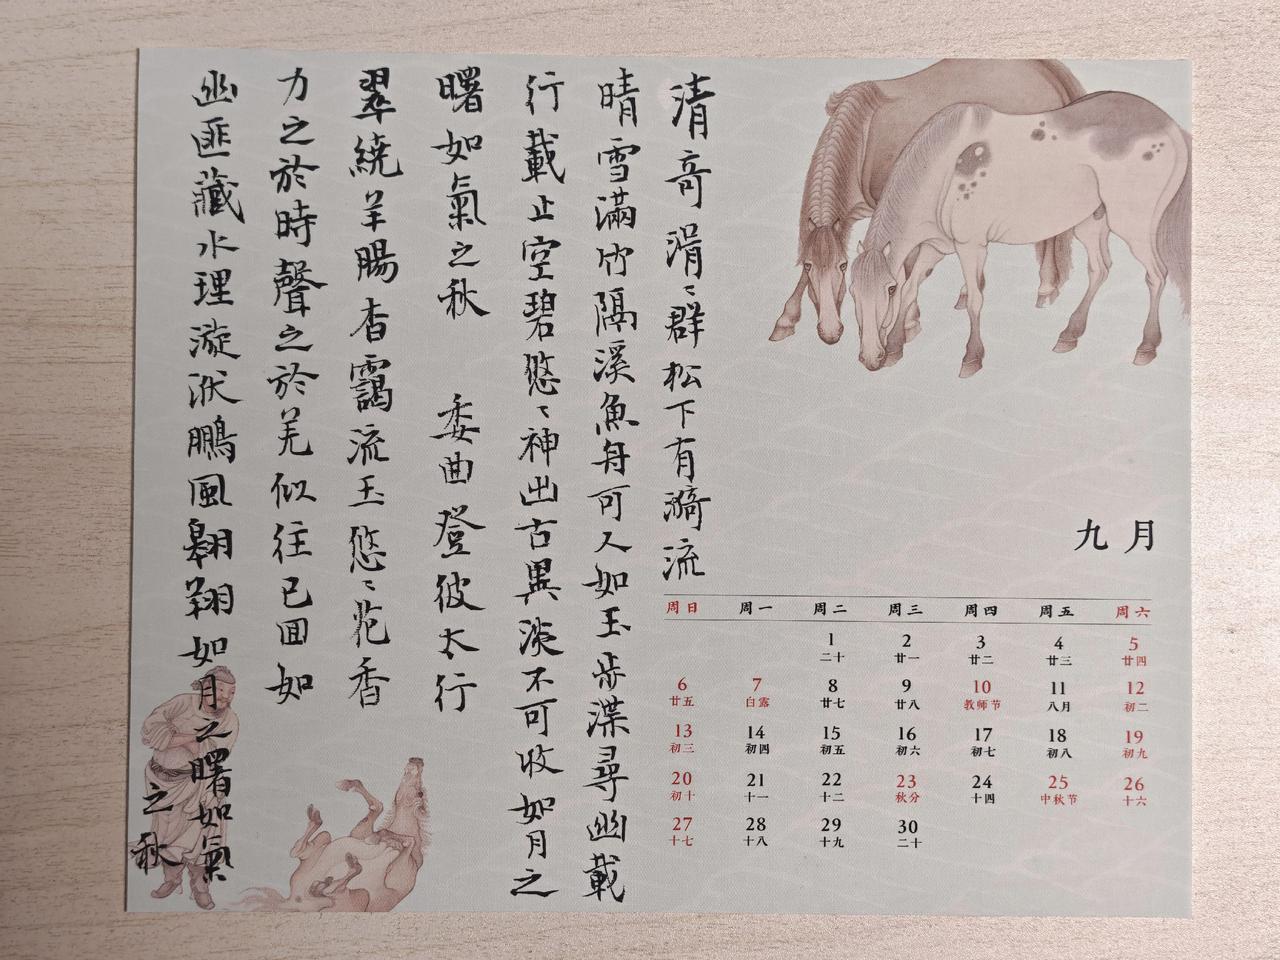 清竒 涓〻群松下有漪流
晴雪滿竹隔溪魚舟可人如玉步渫尋幽載
行載止空碧悠〻神出古異淡不可收如月之
曙如氣之秋 委曲 登彼太行
翠繞羊腸杳靄流玉悠〻花香
力之於時聲之於羌似往已囬如
幽匪藏水理漩洑鵬風翱翔如月之曙如氣
之秋
九月
周日 周一 周二 周三 周四 周五 周六
1 2 3 4 5
二十 廿一 廿二 廿三 廿四
6 7 8 9 10 11 12
廿五 白露 廿七 廿八 教师节 八月 初二
13 14 15 16 17 18 19
初三 初四 初五 初六 初七 初八 初九
20 21 22 23 24 25 26
初十 十一 十二 秋分 十四 中秋节 十六
27 28 29 30
十七 十八 十九 二十